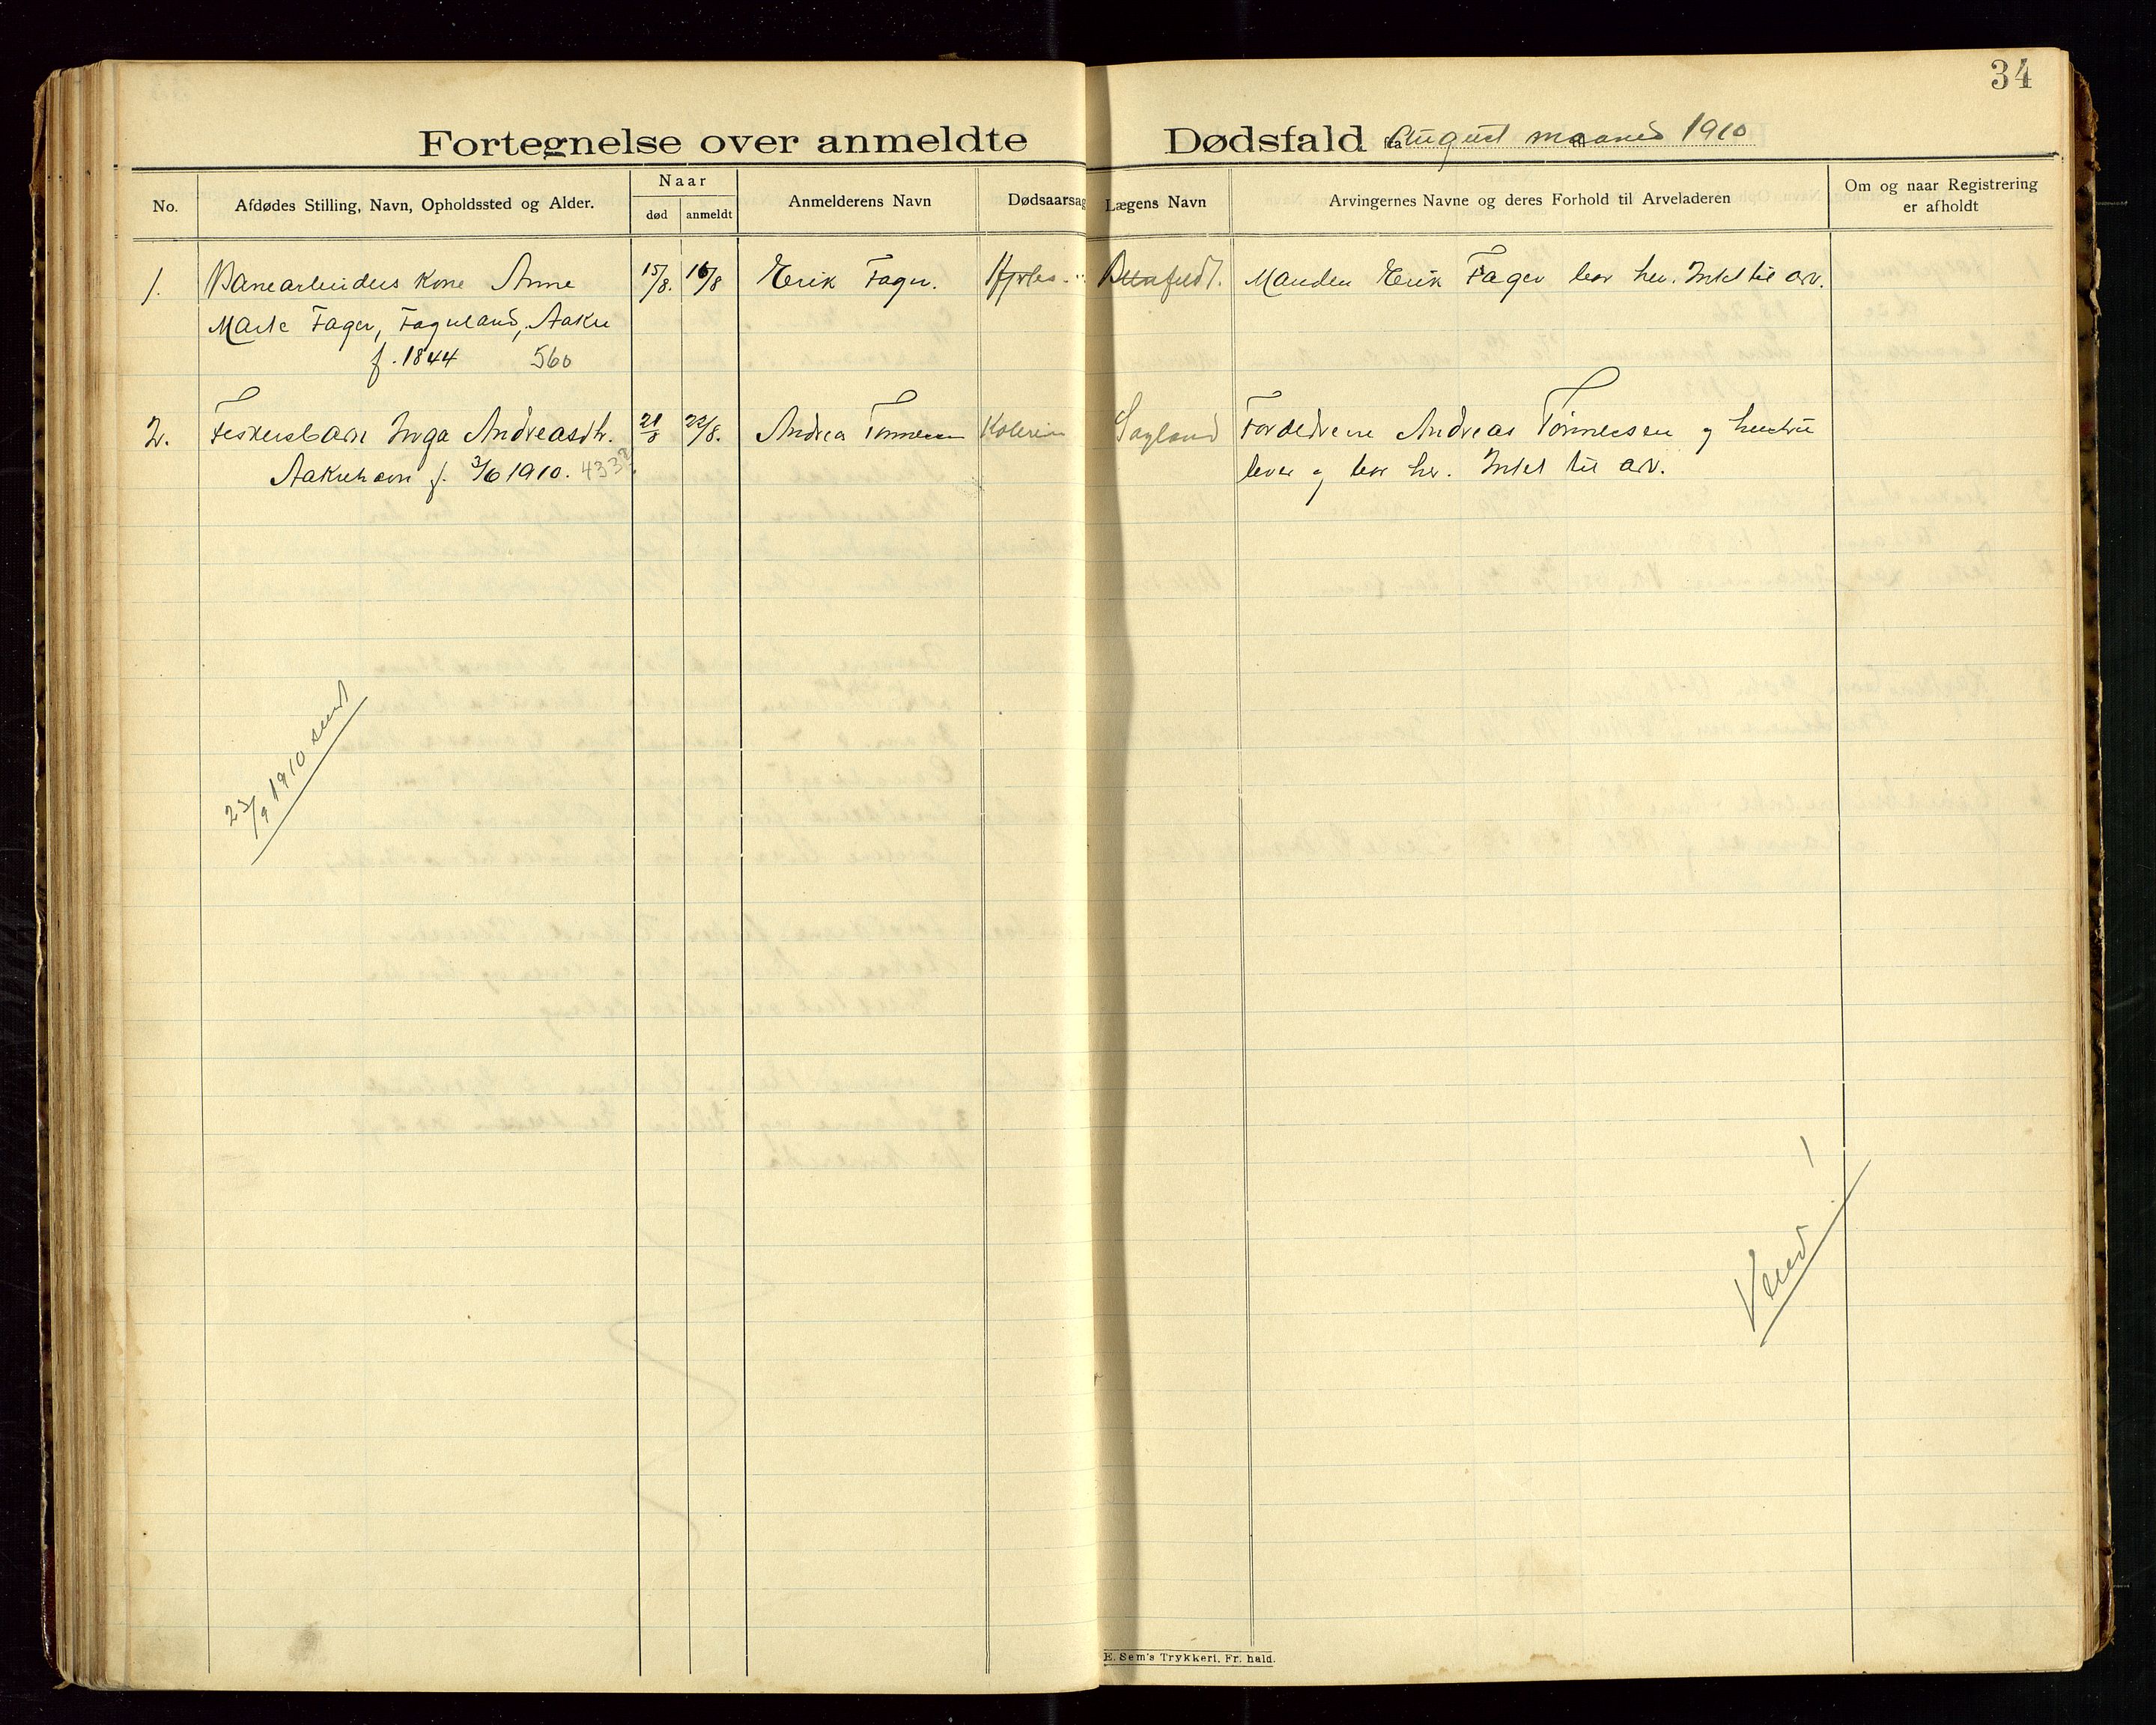 34
Fortegnelse over anmeldte Dødsfald August maaned 1910
No. Afdødes Stilling, Navn, Opholdssted og Alder. Naar død anmeldt Anmelderens Navn Dødsaarsag Lægens Navn Arvingernes Navne og deres Forhold til Arveladeren Om og naar Registrering er afholdt
1. Banearbeiders Kone Anne 15/8. 16/8 Erik Fager. Manden Erik Fager bor her. Intet til arv.
Marie Fager, Fagerland, Aakre
f. 1844 560
2. Feskersbarn Inga Andreasdtr. 21/8 22/8. Andrea Tønnesen Kolerin Sayland Forældrene Andreas Tønnessen og hustru
Aakrehavn f. 3/6 1910. 433? lever og bor her. Intet til arv.
23/9 1910 sendt
Vend!
E. Sem's Trykkeri, Fr. hald.